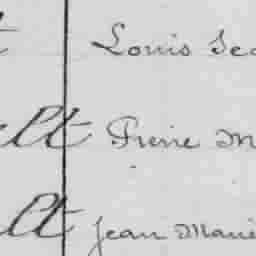 t Louis Jea
lt Pierre M
lt Jean Marie